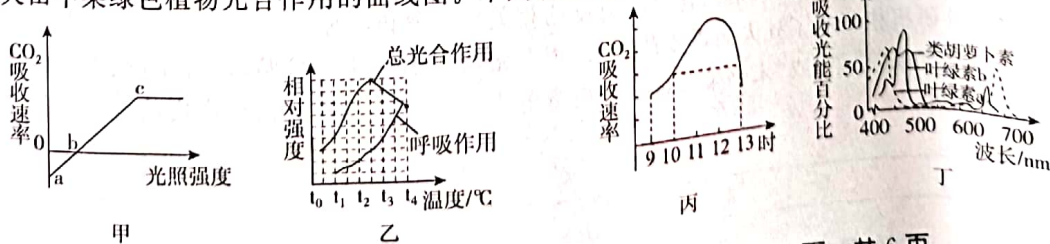 某绿色植物光合作用的曲线图。
CO₂
吸收速率
0
a
b
c
光照强度
甲
相对强度
总光合作用
呼吸作用
t₀ t₁ t₂ t₃ t₄ 温度/℃
乙
CO₂
吸收速率
9 10 11 12 13 时
丙
吸收光能百分比
100
50
0
类胡萝卜素
叶绿素b
叶绿素a
400 500 600 700
波长/nm
丁
共 6 页